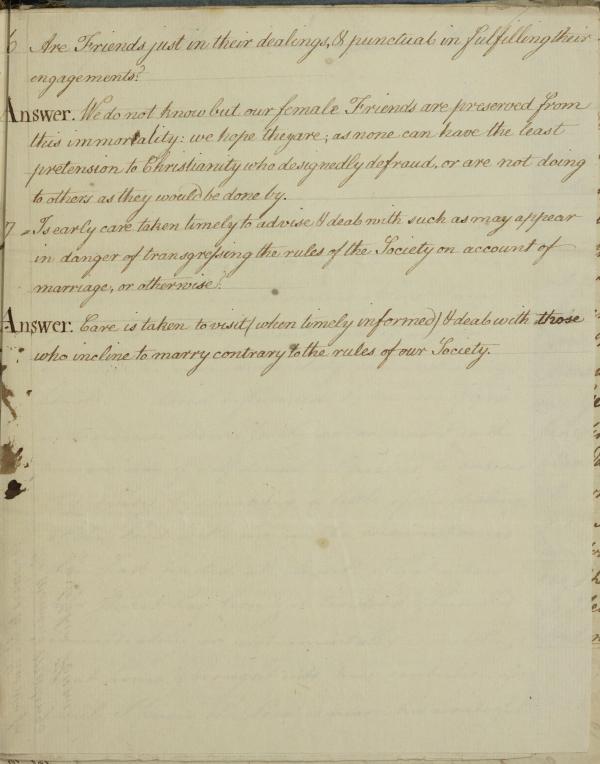 6 Are Friends just in their dealings, & punctual in fulfilling their
engagements?
Answer. We do not know but our female Friends are preserved from
this immorality: we hope they are; as none can have the least
pretension to Christianity who designedly defraud, or are not doing
to others as they would be done by.
7 Is early care taken timely to advise & deal with such as may appear
in danger of transgressing the rules of the Society on account of
marriage, or otherwise?
Answer. Care is taken to visit (when timely informed) & deal with those
who incline to marry contrary to the rules of our Society.